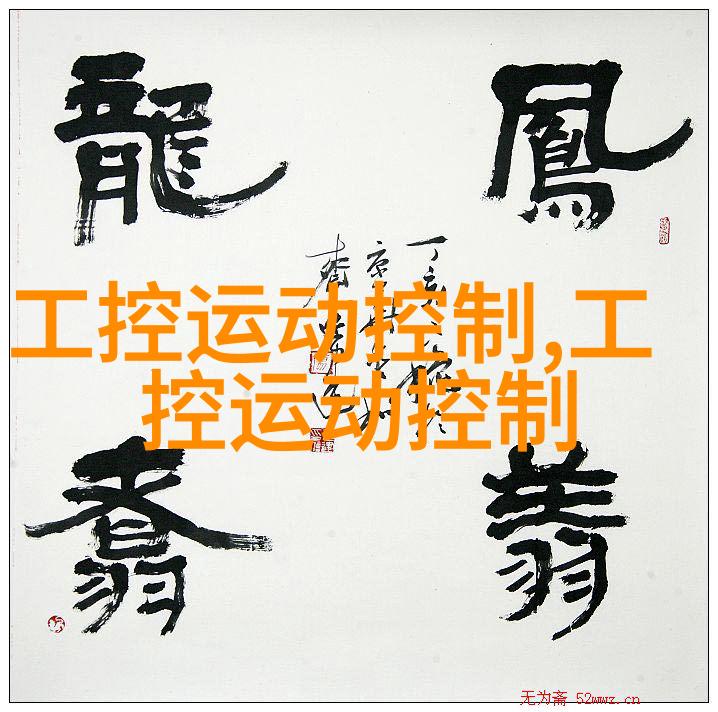 鳳翔
龍翥
丁亥
工控运动控制,工
控运动控制
无为斋 52wwz.cn